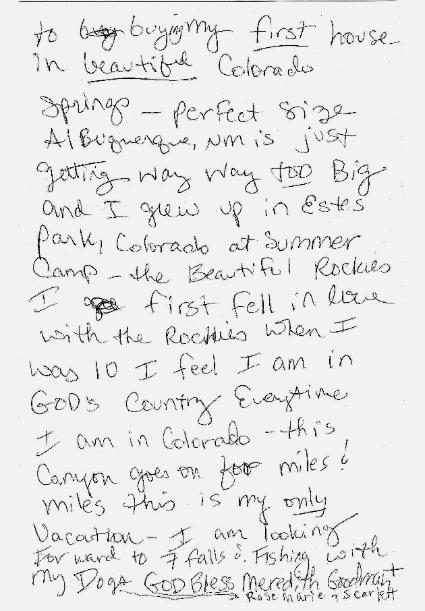 to buying my first house
in beautiful Colorado
Springs – perfect size
Albuquerque, NM is just
getting way way too Big
and I grew up in Estes
Park, Colorado at Summer
Camp – the Beautiful Rockies
I first fell in love
with the Rockies when I
was 10 I feel I am in
GOD's Country Everytime
I am in Colorado – this
Canyon goes on for miles &
miles this is my only
Vacation – I am looking
Forward to 7 falls & Fishing with
My Dogs GOD Bless Meredith Goodman +
Rose Marie & Scarlett